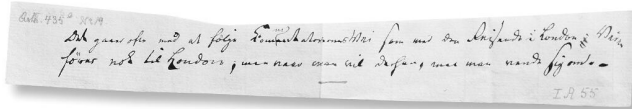 Qvart. 435
Det gaaer ofte med at følge Commentatorernes Vei som med den Reisende i London; Veien
fører nok til London; men naar man vil derhen, maa man vende sig om –
I A 55